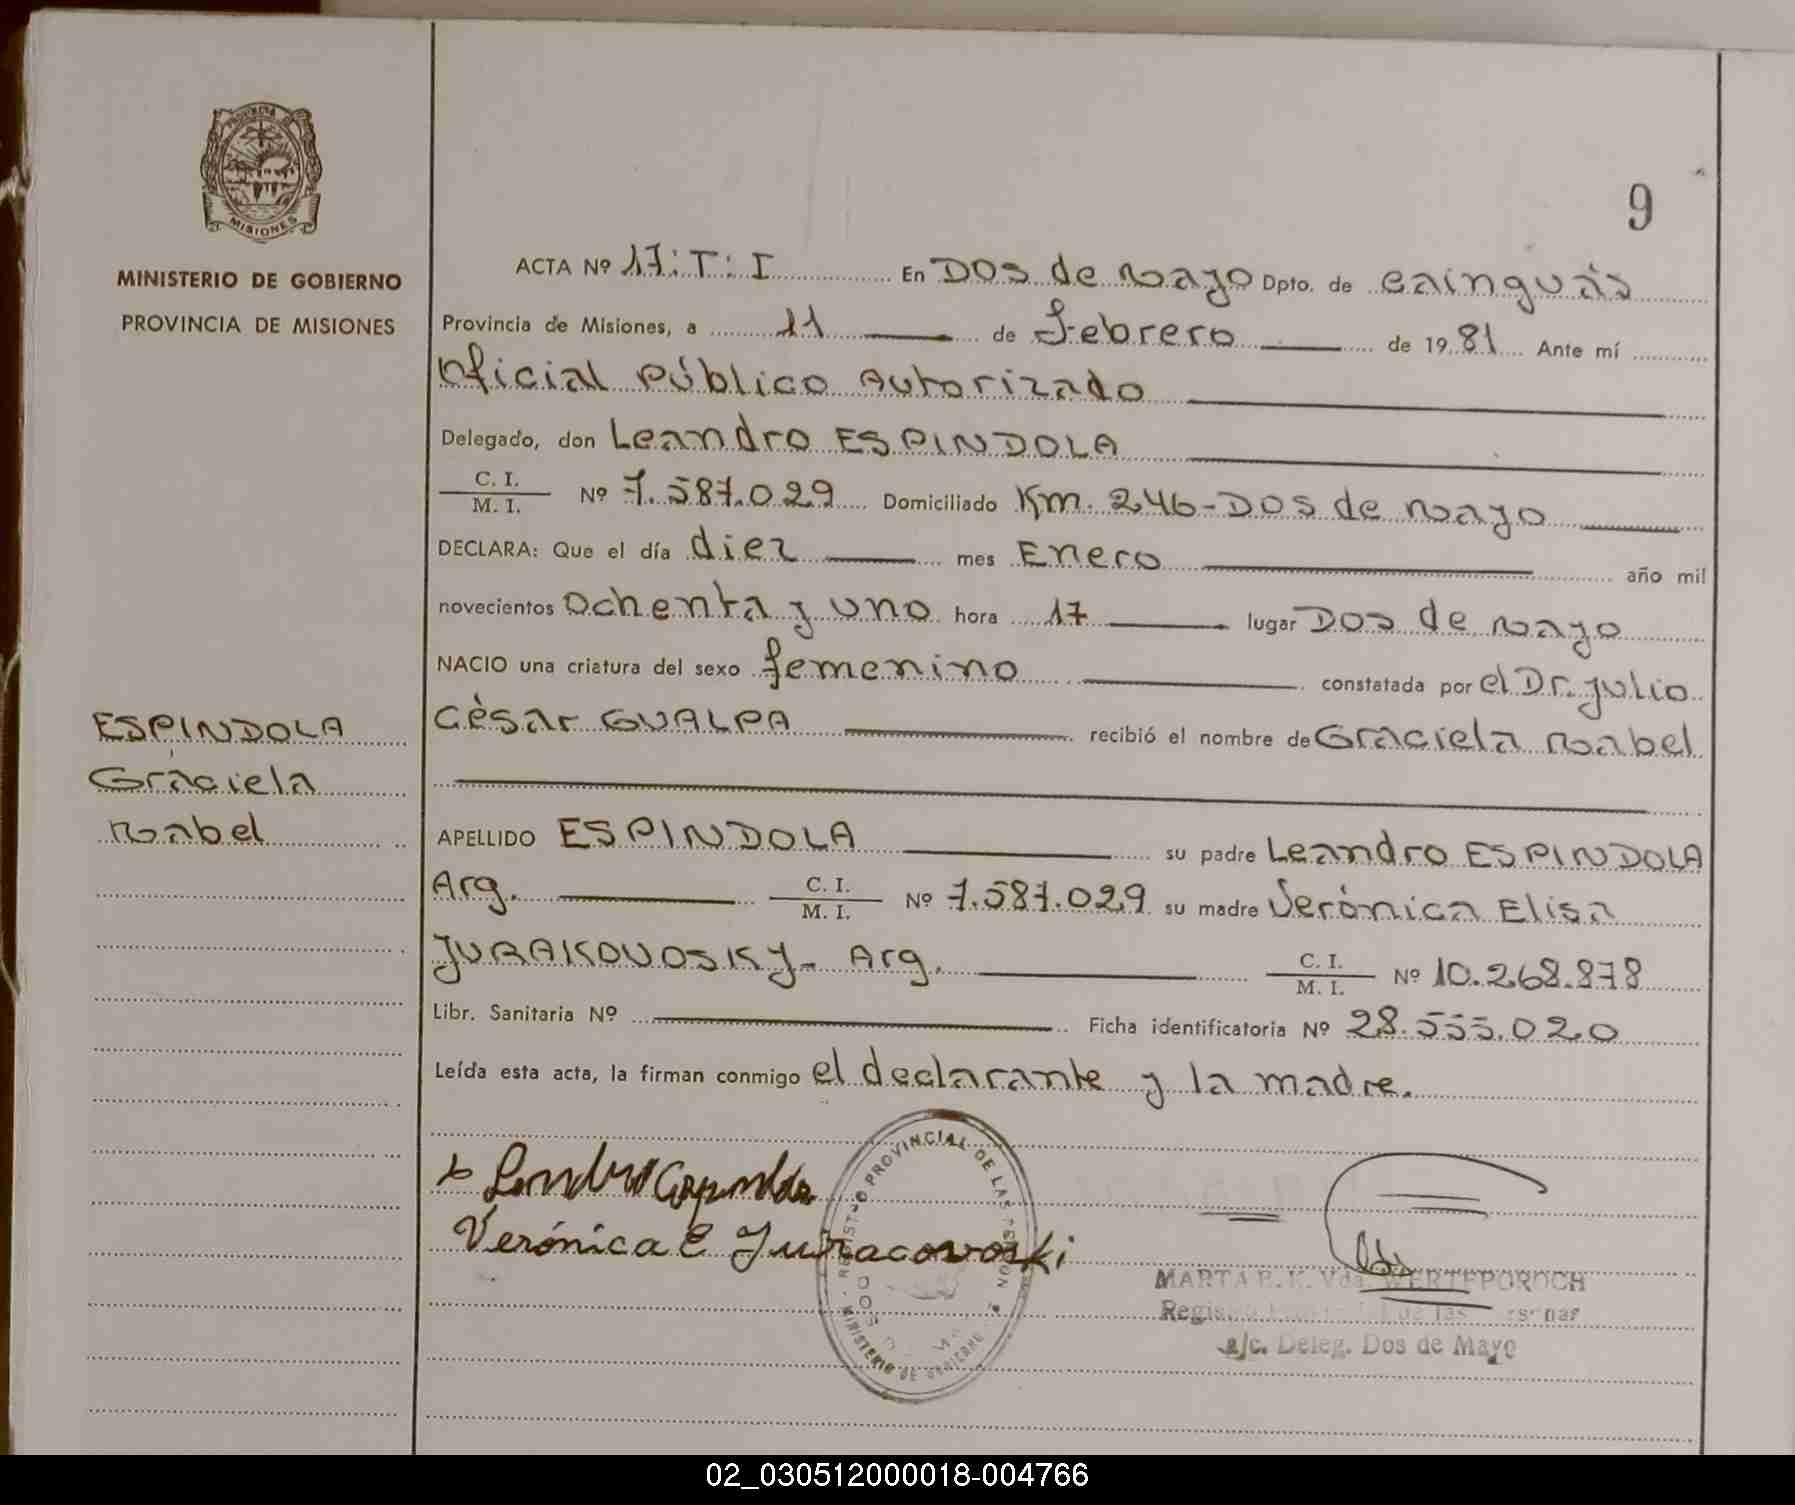 PROVINCIA DE
MISIONES
MINISTERIO DE GOBIERNO
PROVINCIA DE MISIONES
9
ACTA Nº 17: T: I En Dos de Mayo Dpto. de Cainguás
Provincia de Misiones, a 11 de Febrero de 1981 Ante mí
Oficial Público Autorizado
Delegado, don Leandro ESPINDOLA
C. I.
M. I. Nº 7.587.029 Domiciliado Km. 246-Dos de Mayo
DECLARA: Que el día diez mes Enero año mil
novecientos Ochenta y uno hora 17 lugar Dos de Mayo
NACIO una criatura del sexo femenino constatada por el Dr. Julio
César GUALPA recibió el nombre de Graciela Mabel
ESPINDOLA
Graciela
Mabel
APELLIDO ESPINDOLA su padre Leandro ESPINDOLA
Arg. C. I.
M. I. Nº 7.587.029 su madre Verónica Elisa
JURAKOVOSKY- Arg. C. I.
M. I. Nº 10.268.878
Libr. Sanitaria Nº Ficha identificatoria Nº 28.555.020
Leída esta acta, la firman conmigo el declarante y la madre.
Verónica E Juracovoski
REGISTRO PROVINCIAL DE LAS
MINISTERIO DE GOBIERNO
DOS
MARTA Vda. WERTEPOROCH
a/c. Deleg. Dos de Mayo
02_030512000018-004766